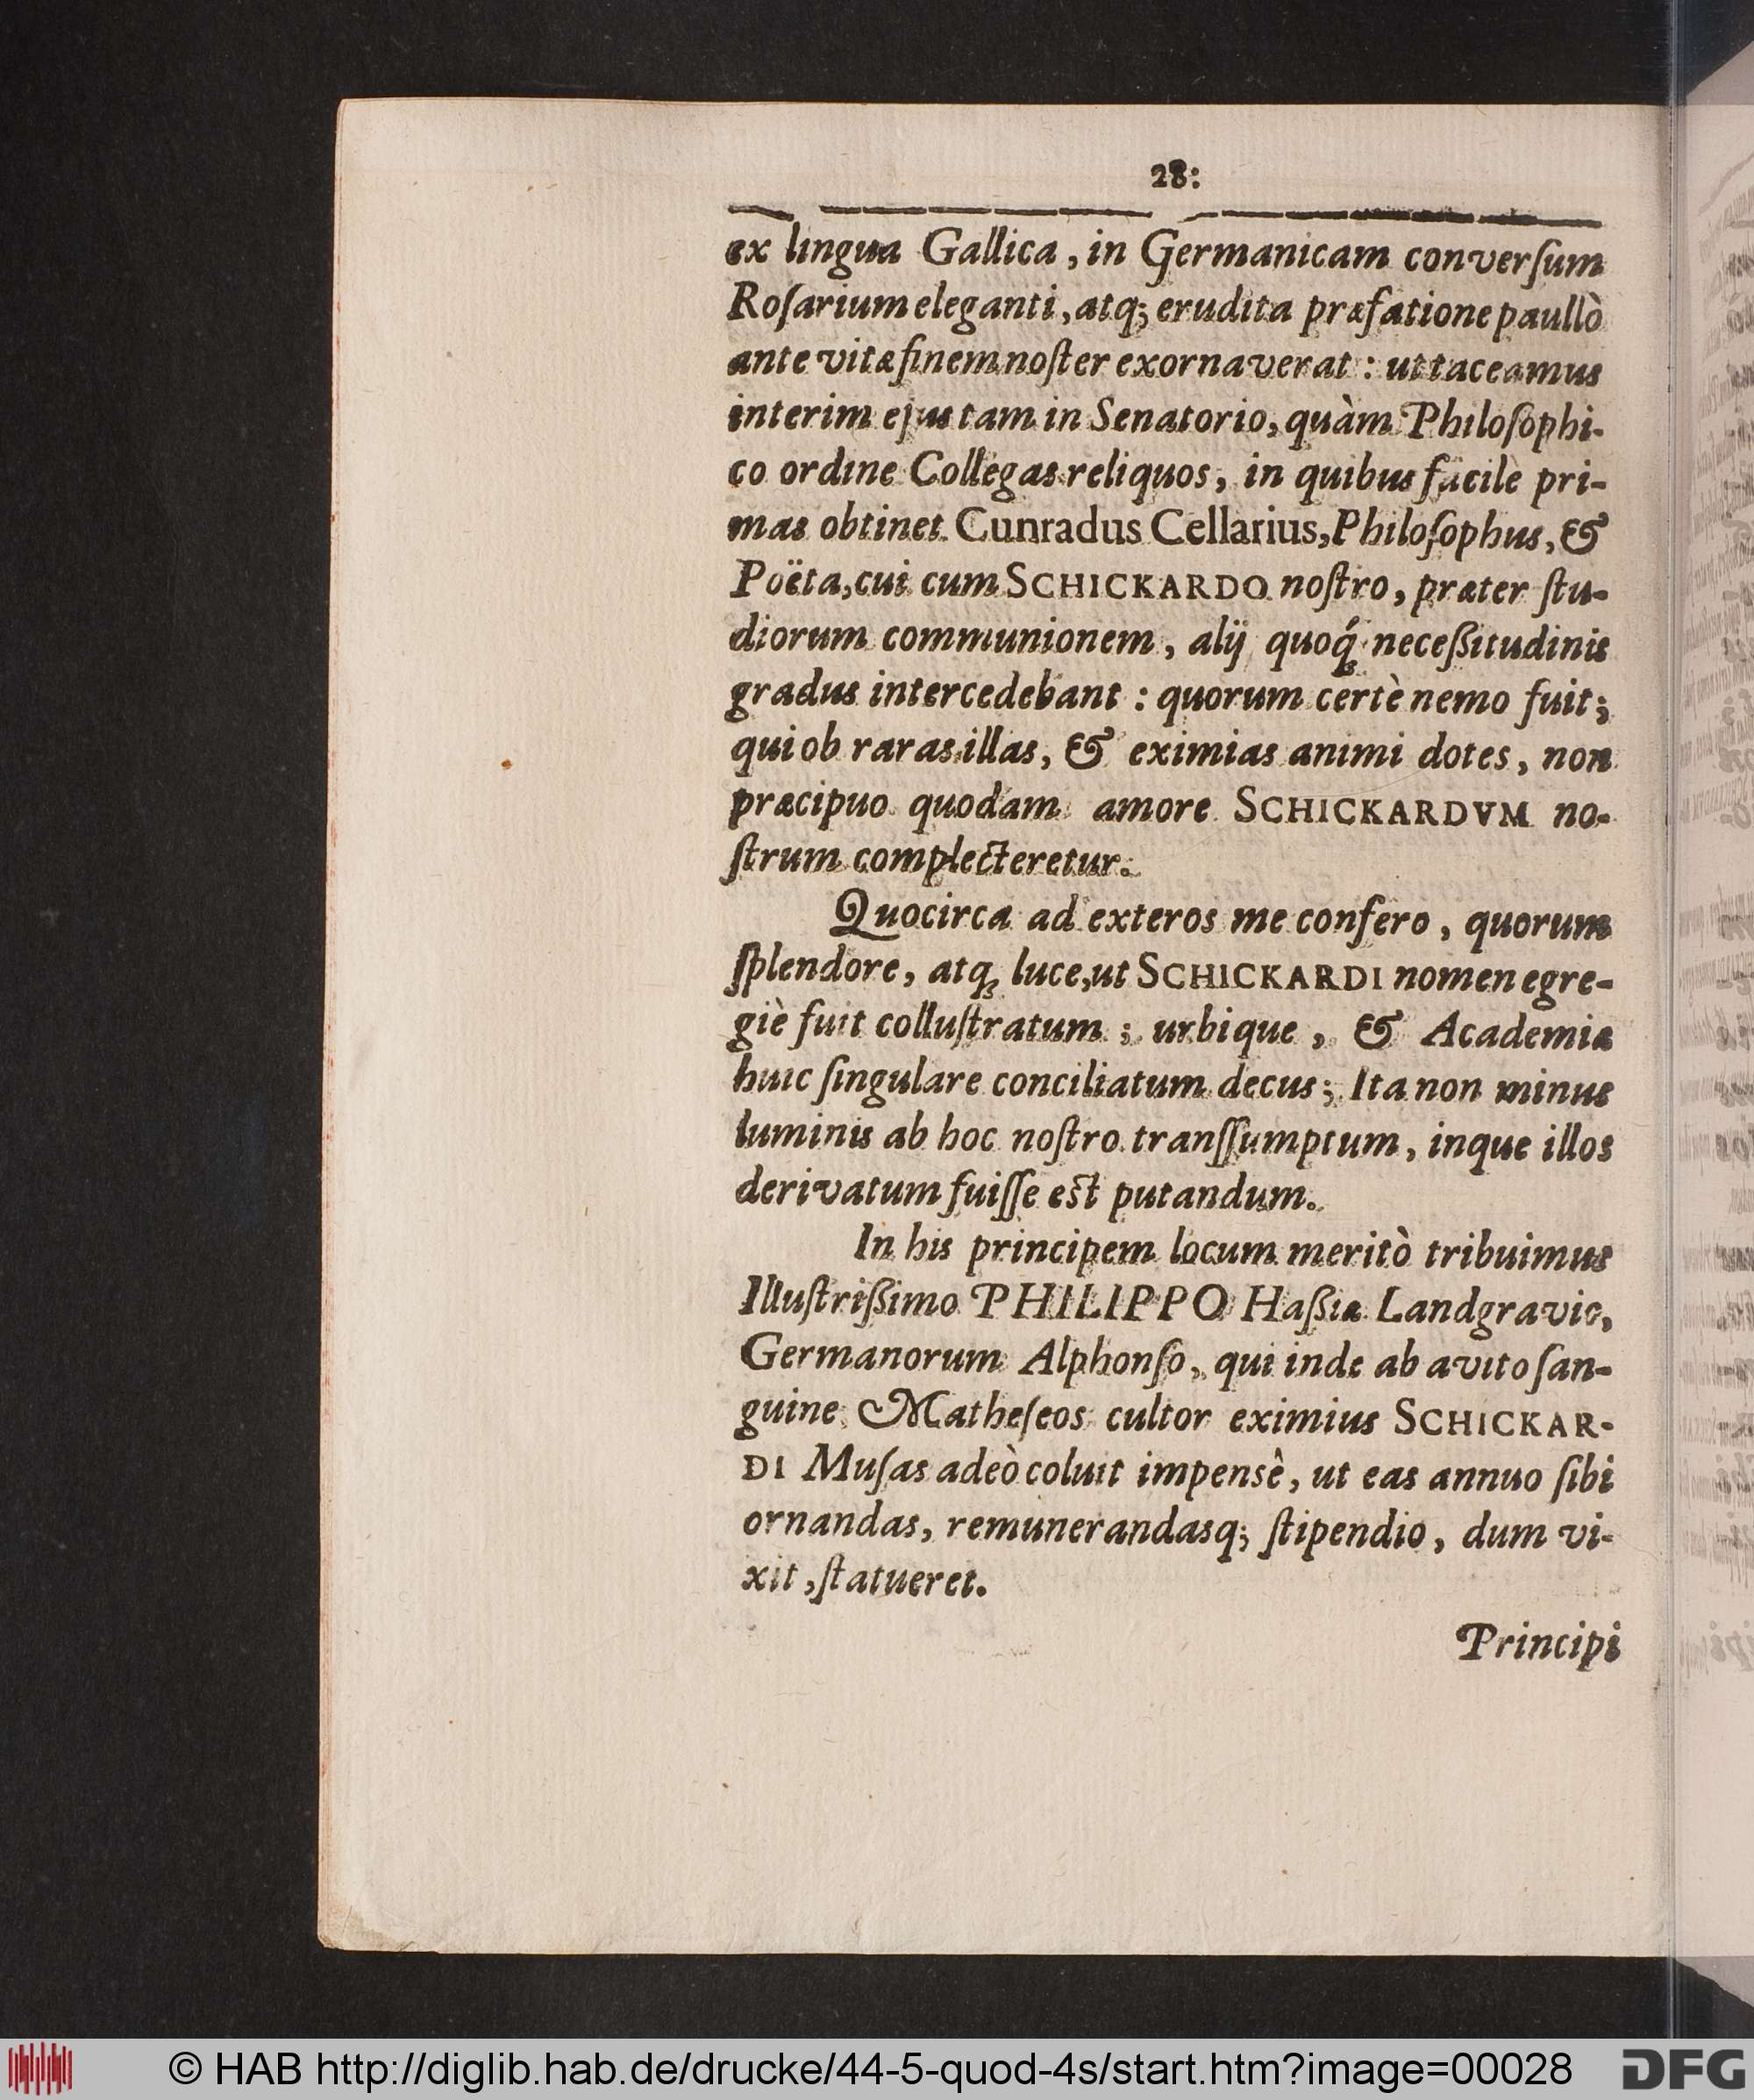 28:
ex lingua Gallica, in Germanicam converſum
Roſarium eleganti, atq; erudita præfatione paullò
ante vitæ finem noſter exornaverat : ut taceamus
interim ejus tam in Senatorio, quàm Philoſophi-
co ordine Collegas reliquos, in quibus facilè pri-
mas obtinet Cunradus Cellarius, Philoſophus, &
Poëta, cui cum SCHICKARDO noſtro, præter ſtu-
diorum communionem, alij quoq́; neceßitudinis
gradus intercedebant : quorum certè nemo fuit;
qui ob raras illas, & eximias animi dotes, non
præcipuo quodam amore SCHICKARDVM no-
ſtrum complecteretur.
Quocirca ad exteros me confero, quorum
ſplendore, atq; luce, ut SCHICKARDI nomen egre-
giè fuit colluſtratum ; urbique, & Academiæ
huic ſingulare conciliatum decus; Ita non minus
luminis ab hoc noſtro tranſſumptum, inque illos
derivatum fuiſſe est putandum.
In his principem locum meritò tribuimus
Illuſtrißimo PHILIPPO Haßiæ Landgravio,
Germanorum Alphonſo, qui inde ab avito ſan-
guine Matheſeos cultor eximius SCHICKAR-
DI Muſas adeò coluit impensè, ut eas annuo ſibi
ornandas, remunerandasq; ſtipendio, dum vi-
xit, ſtatueret.
Principi
© HAB http://diglib.hab.de/drucke/44-5-quod-4s/start.htm?image=00028
DFG